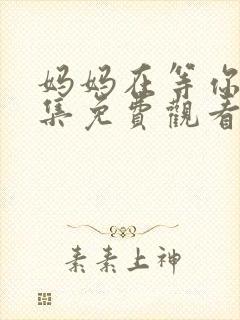 妈妈在等你
集免費觀看
素素上神